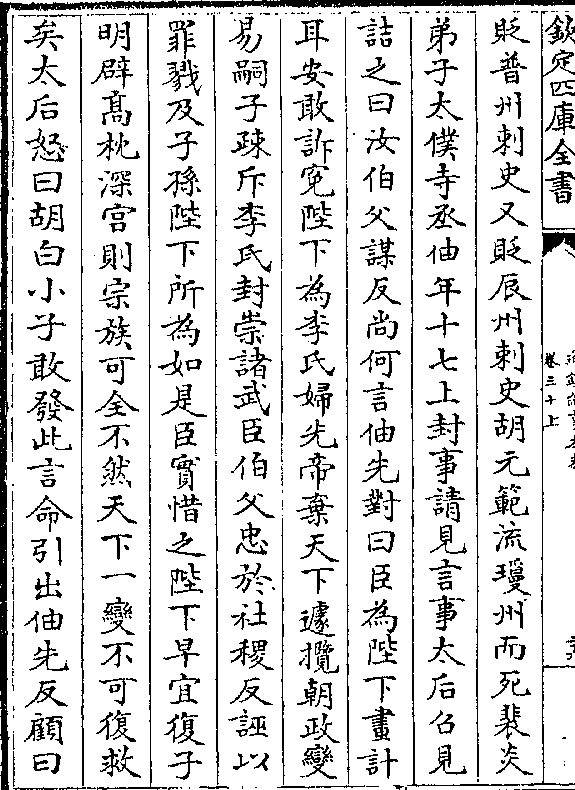 欽定四庫全書
卷三十上
貶普州刺史又貶辰州刺史胡元範流瓊州而死裴炎
弟子太僕寺丞伷年十七上封事請見言事太后召見
詰之曰汝伯父謀反尚何言伷先對曰臣為陛下畫計
耳安敢訴寃陛下為李氏婦先帝棄天下遽攬朝政變
易嗣子疎斥李氏封崇諸武臣伯父忠於社稷反誣以
罪戮及子孫陛下所為如是臣實惜之陛下早宜復子
明辟髙枕深宫則宗族可全不然天下一變不可復救
矣太后怒曰胡白小子敢發此言命引出伷先反顧曰